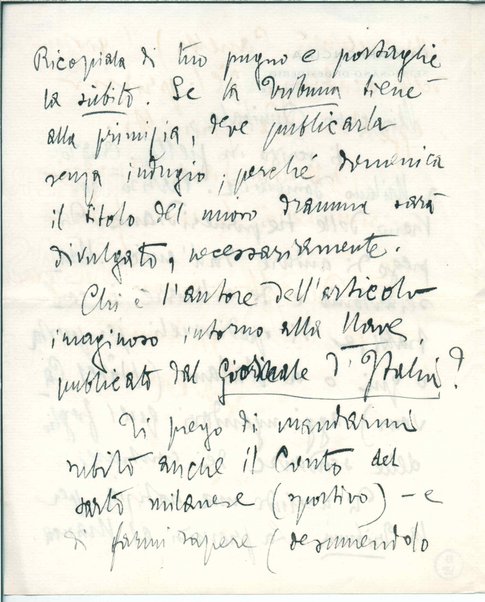 Ricopiala di tuo pugno e portaglie
la subito. Se la Tribuna tiene
alla primizia, deve publicarla
senza indugio, perché domenica
il titolo del nuovo dramma sarà
divulgato, necessariamente.
Chi è l'autore dell'articolo
imaginoso intorno alla Nave
publicato dal Giornale d'Italia?
Ti prego di mandarmi
subito anche il Conto del
sarto milanese (sportivo) – e
di farmi sapere (desumendolo